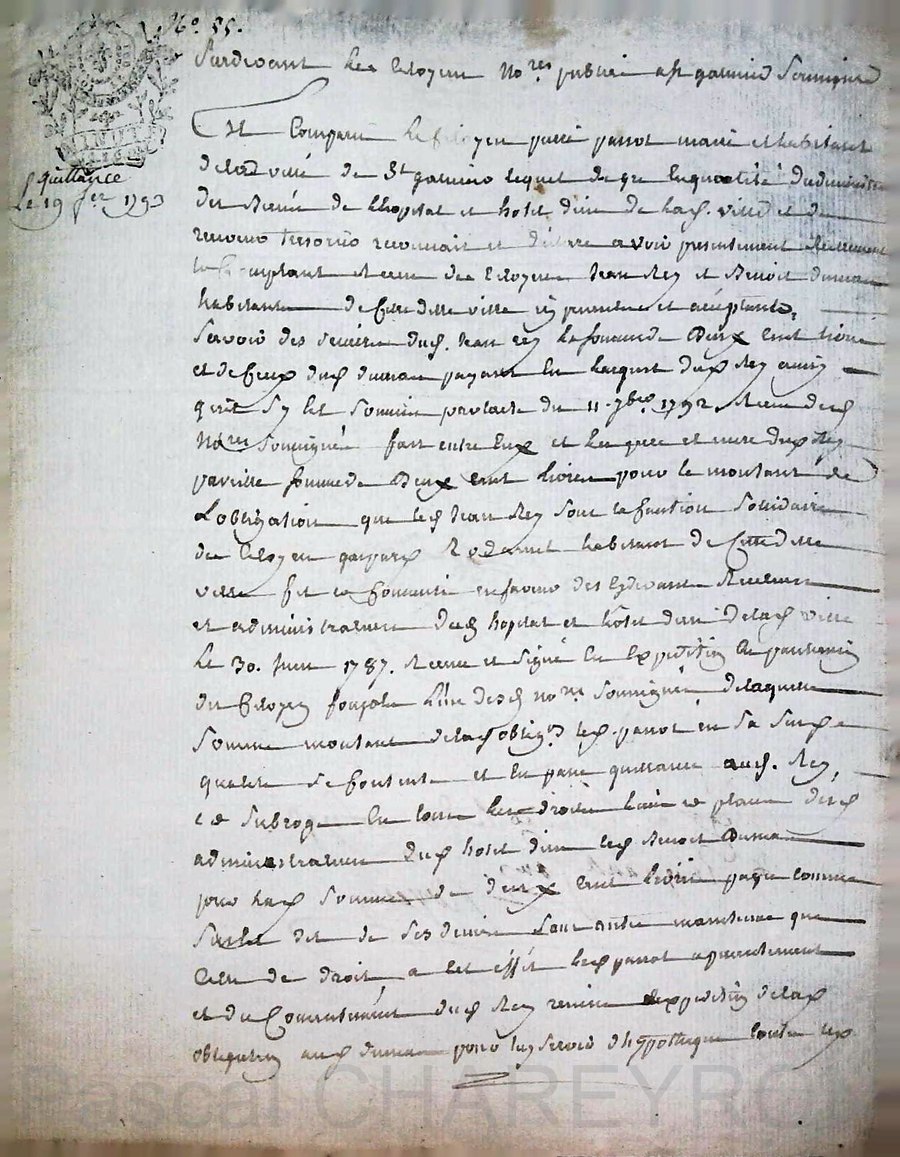 N.º 55.
Pardevant Les Citoyens No.res publics à St galmier Soussignés
quittance
Le 19 fer 1793
Est Comparu Le Citoyen pierre parrot maire et habitant
de lad. ville de St galmier lequel de gré En qualité
des Biens de L'hopital et hotel dieu de lad. ville et de
receveur tresorier reconnait et déclare avoir presentement réellement
comptant Receu des Citoyens Jean Rey et Benoit Dumas
habitants de Cette ditte ville icy presents et acceptants,
Savoir des deniers dud. Jean Rey la somme de Deux Cent livres
et de Ceux dud. dumas payant En l'acquit dud. Rey ainsy
qu'il s'y est Soumis par acte du 11 7bre 1792. Receu desd.
No.res Soussignés fait entre Eux et les pere et mere dud. Rey
pareille somme de Deux Cent livres pour le montant de
L'obligation que led. Jean Rey Sous la Caution Solidaire
du Citoyen gaspard habitant de Cette ditte
ville fit en faveur des Cydevant Recteurs
et administrateurs dud. hopital et hotel dieu de lad. ville
Le 30. Juin 1787. Receue et Signé En Expedition
du Citoyen L'un desd. No.res Soussignés de laquelle
Somme montant de lad. oblig.on led. parrot en Sa Susd.e
qualité se Contente et En passe quittance aud. Rey,
et Subroge En tous les droits lieu et place desd.
administrateurs dud. hotel dieu led. Benoit Dumas
pour lad. Somme de deux Cent livres payée Comme
Sus est dit de Ses deniers Sans autre maintenue que
Celle de droit, a Cet effet led. parrot a presentement
et du Consentement dud. Rey remis l'expedition de lad.
obligation aud. dumas pour luy Servir d'hypotheque Contre led.
Pascal CHAREYRON